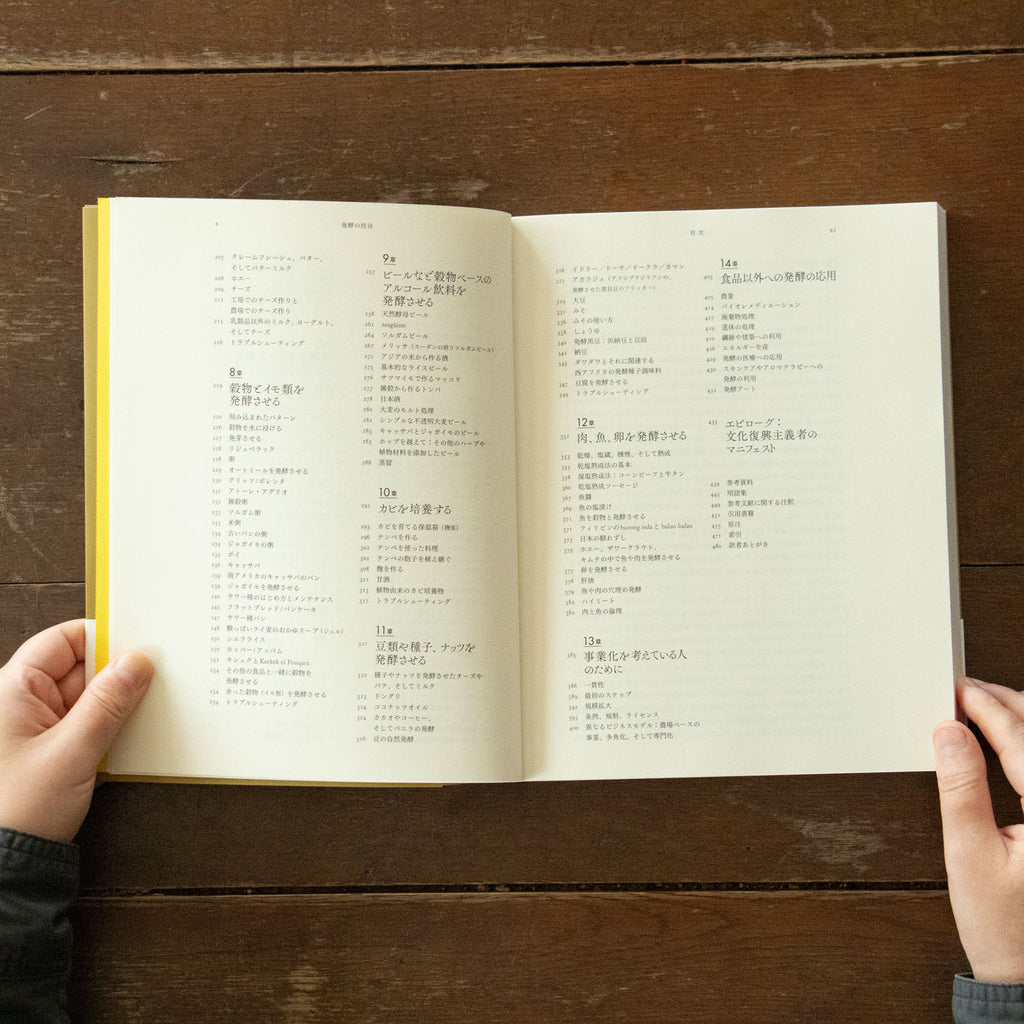 x
発酵の技法
207 クレームフレーシュ、バター、
そしてバターミルク
208 ホエー
209 チーズ
212 工場でのチーズ作りと
農場でのチーズ作り
215 乳製品以外のミルク、ヨーグルト、
そしてチーズ
216 トラブルシューティング
8章
219 穀物とイモ類を
発酵させる
220 刻み込まれたパターン
226 穀物を水に浸ける
227 発芽させる
228 リジュベラック
228 粥
229 オートミールを発酵させる
230 グリッツ/ポレンタ
231 アトーレ・アグリオ
232 雑穀粥
233 ソルガム粥
233 米粥
234 古いパンの粥
234 ジャガイモの粥
235 ポイ
236 キャッサバ
239 南アメリカのキャッサバのパン
239 ジャガイモを発酵させる
240 サワー種のはじめ方とメンテナンス
245 フラットブレッド/パンケーキ
247 サワー種パン
248 酸っぱいライ麦のおかゆスープ（ジュル）
250 シエラライス
250 ホッパー/アッパム
252 キシュクとKeckek el Fouqara
254 その他の食品と一緒に穀物を
発酵させる
254 余った穀物（イモ類）を発酵させる
254 トラブルシューティング
9章
257 ビールなど穀物ベースの
アルコール飲料を
発酵させる
258 天然酵母ビール
261 tesgüino
264 ソルガムビール
267 メリッサ（スーダンの煎りソルガムビール）
272 アジアの米から作る酒
273 基本的なライスビール
276 サツマイモで作るマッコリ
277 雑穀から作るトンバ
278 日本酒
280 大麦のモルト処理
282 シンプルな不透明大麦ビール
283 キャッサバとジャガイモのビール
285 ホップを越えて：その他のハーブや
植物材料を添加したビール
288 蒸留
10章
291 カビを培養する
293 カビを育てる保温箱（麹室）
296 テンペを作る
302 テンペを使った料理
302 テンペの胞子を植え継ぐ
308 麹を作る
322 甘酒
323 植物由来のカビ培養物
327 トラブルシューティング
11章
321 豆類や種子、ナッツを
発酵させる
322 種子やナッツを発酵させたチーズや
パテ、そしてミルク
323 ドングリ
324 ココナッツオイル
324 カカオやコーヒー、
そしてバニラの発酵
326 豆の自然発酵
目次
xi
326 イドリー/ドーサ/ドークラ/カマン
327 アカラジェ（アフロブラジリアンの、
発酵させた黒目豆のフリッター）
329 大豆
332 みそ
336 みその使い方
338 しょうゆ
340 発酵黒豆：浜納豆と豆豉
342 納豆
345 ダワダワとそれに関連する
西アフリカの発酵種子調味料
347 豆腐を発酵させる
349 トラブルシューティング
12章
351 肉、魚、卵を発酵させる
353 乾燥、塩蔵、燻煙、そして熟成
355 乾塩熟成法の基本
358 湿塩熟成法：コーンビーフと牛タン
360 乾塩熟成ソーセージ
367 魚醤
369 魚の塩漬け
371 魚を穀物と発酵させる
371 フィリピンのburong isdaとbalao-balao
373 日本の馴れずし
375 ホエー、ザワークラウト、
キムチの中で魚や肉を発酵させる
377 卵を発酵させる
378 肝油
379 魚や肉の穴埋め発酵
382 ハイミート
382 肉と魚の倫理
13章
385 事業化を考えている人
のために
386 一貫性
389 最初のステップ
392 規模拡大
395 条例、規制、ライセンス
400 異なるビジネスモデル：農場ベースの
事業、多角化、そして専門化
14章
403 食品以外への発酵の応用
405 農業
414 バイオレメディエーション
417 廃棄物処理
419 遺体の処理
420 繊維や建築への利用
426 エネルギー生産
429 発酵の医療への応用
430 スキンケアやアロマテラピーへの
発酵の利用
432 発酵アート
435 エピローグ：
文化復興主義者の
マニフェスト
439 参考資料
445 用語集
449 参考文献に関する注釈
451 引用書籍
455 原注
471 索引
480 訳者あとがき